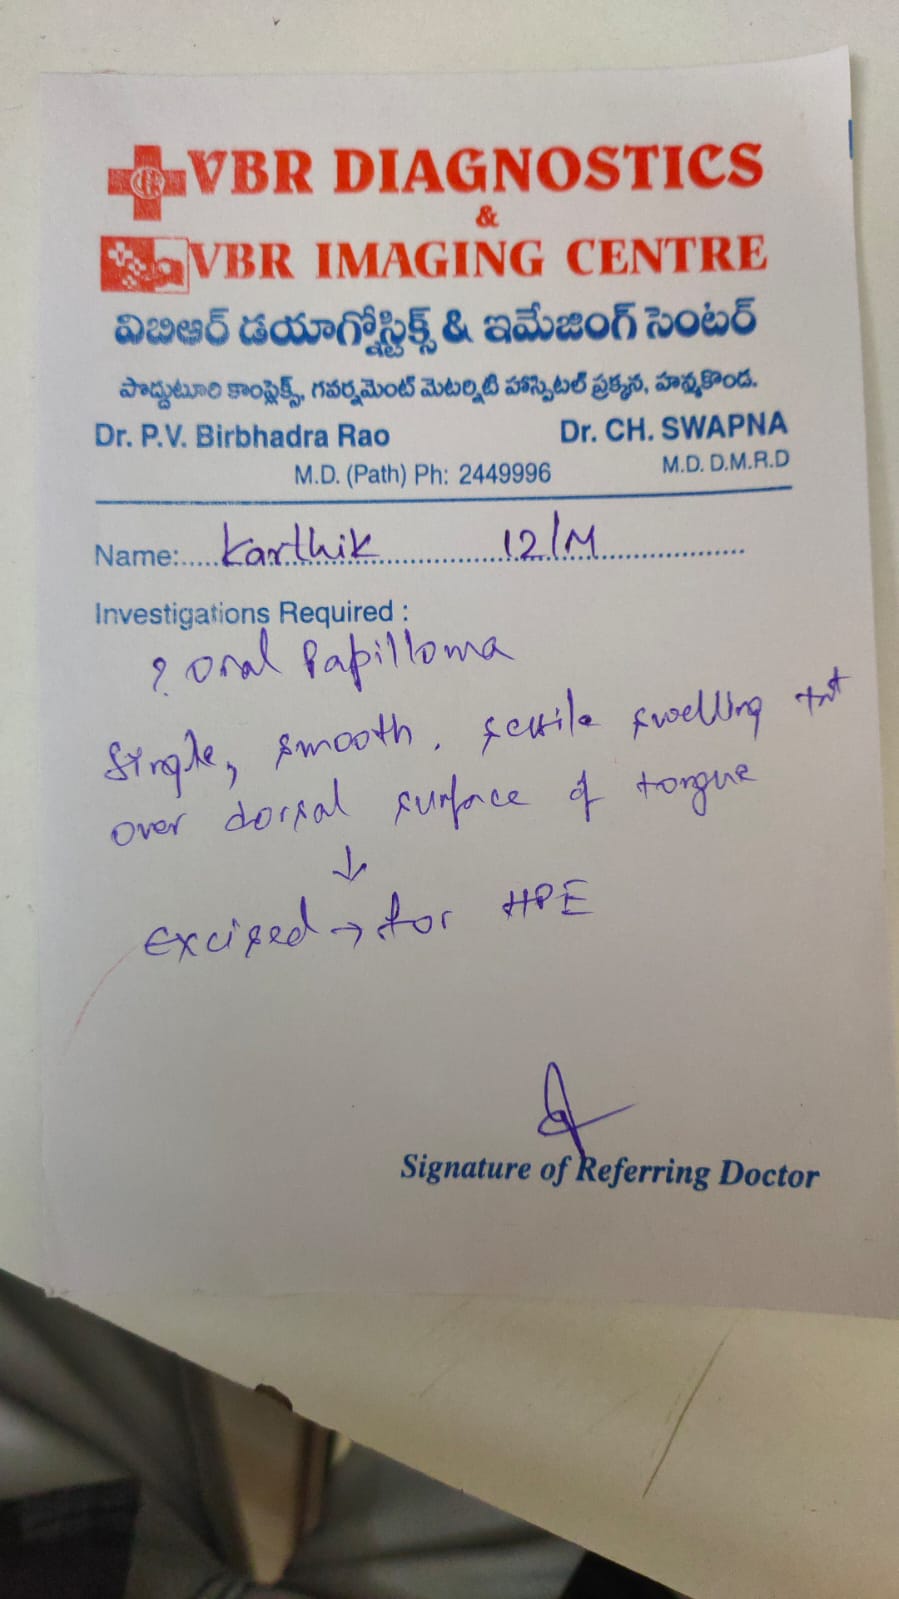 VBR DIAGNOSTICS
&
VBR IMAGING CENTRE
విబిఆర్ డయాగ్నోస్టిక్స్ & ఇమేజింగ్ సెంటర్
పొద్దుటూరి కాంప్లెక్స్, గవర్నమెంట్ మెటర్నిటి హాస్పిటల్ ప్రక్కన, హన్మకొండ.
Dr. P.V. Birbhadra Rao Dr. CH. SWAPNA
M.D. (Path) Ph: 2449996 M.D. D.M.R.D
Name:.....Karthik 12/M
Investigations Required :
? Oral Papilloma
Single, smooth, sessile swelling
over dorsal surface of tongue
↓
Excised → for HPE
Signature of Referring Doctor